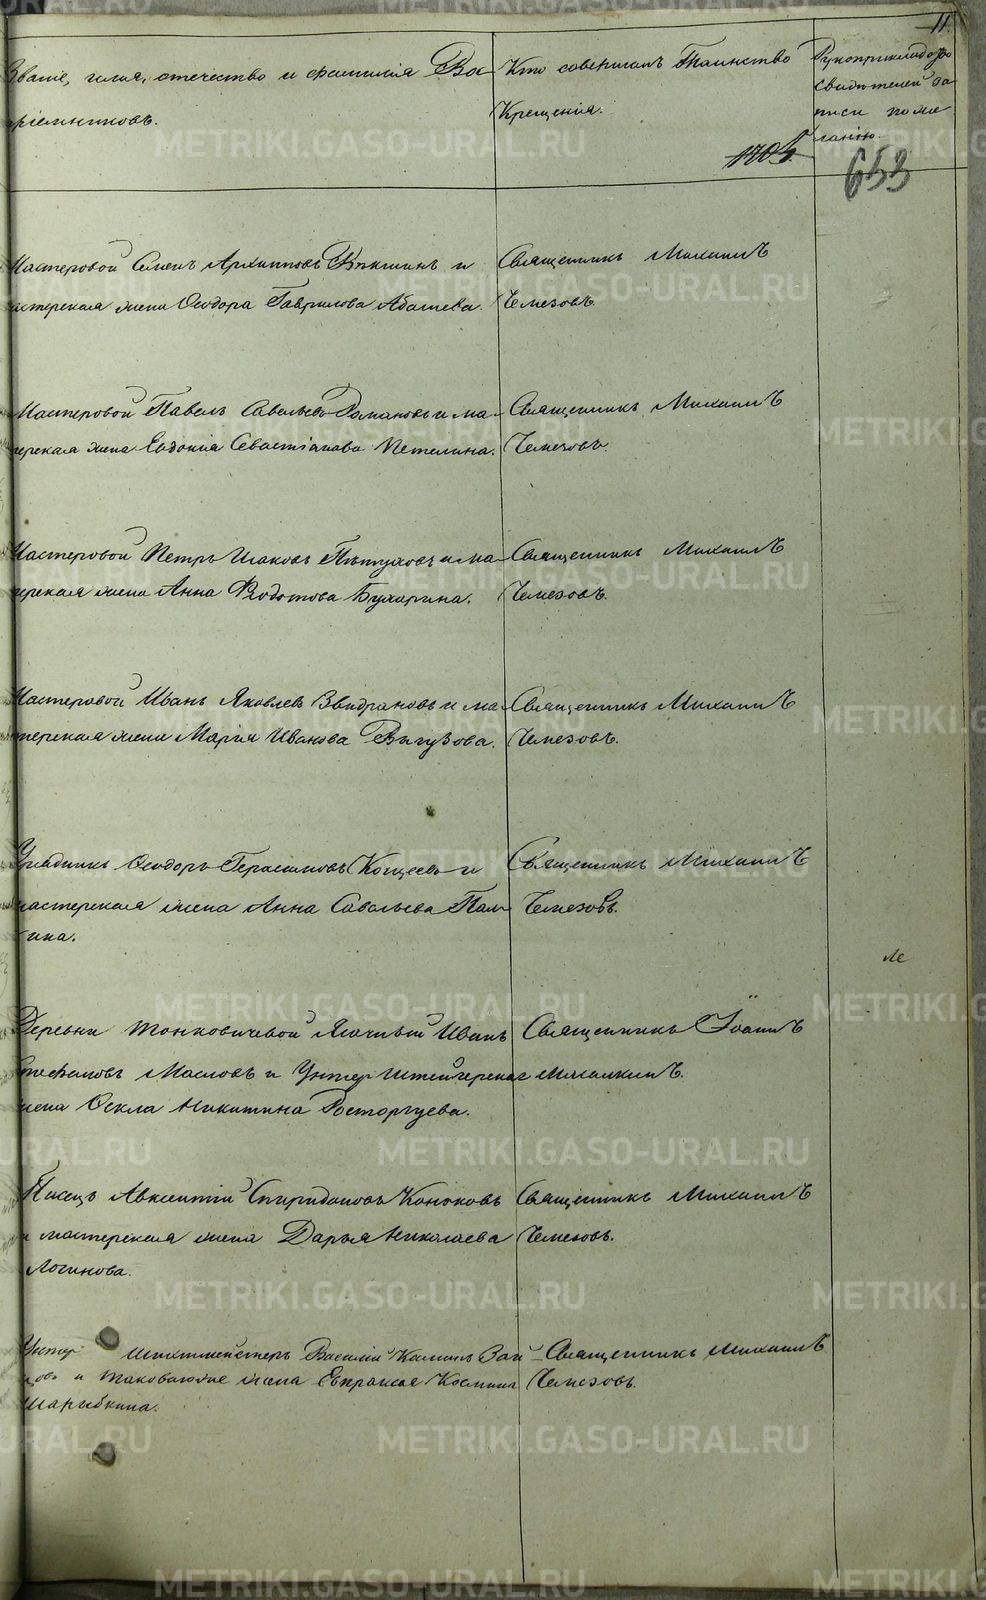 11.
Званіе, имя, отечество и фамилія Вос-
пріемниковъ.
Кто совершалъ Таинство
Крещенія.
Рукоприкладство
свидѣтелей за-
писи по же-
ланію.
1705.
653
Мастеровой Семенъ Архиповъ и
мастерская жена Ѳеодора Гаврилова Абашева.
Священникъ Михаилъ
Чемезовъ.
Мастеровой Павелъ Савельевъ Романовъ и ма-
терская жена Евдокія Севастіанова Петелина.
Священникъ Михаилъ
Чемезовъ.
Мастеровой Петръ Исаковъ Пѣтуховъ и ма-
терская жена Анна Ѳедотова Бухарина.
Священникъ Михаилъ
Чемезовъ.
Мастеровой Иванъ Яковлевъ и ма-
терская жена Марія Иванова Выгузова.
Священникъ Михаилъ
Чемезовъ.
Урядникъ Ѳеодоръ Герасимовъ Кощеевъ и
мастерская жена Анна Савельева Пал-
кина.
Священникъ Михаилъ
Чемезовъ.
Деревни Тонковичевой Ясачный Иванъ
Стефановъ Масловъ и Унтер Штейгерская
жена Ѳекла Никитина Расторгуева.
Священникъ Іоаннъ
Писецъ Авксентій Спиридоновъ Конюховъ
и мастерская жена Дарья Николаева
Логинова.
Священникъ Михаилъ
Чемезовъ.
Унтер шихтмейстеръ Василій Козминъ Зай-
цовъ и таковаго же жена Евпраксія Космина
Шарыбкина.
Священникъ Михаилъ
Чемезовъ.
METRIKI.GASO-URAL.RU